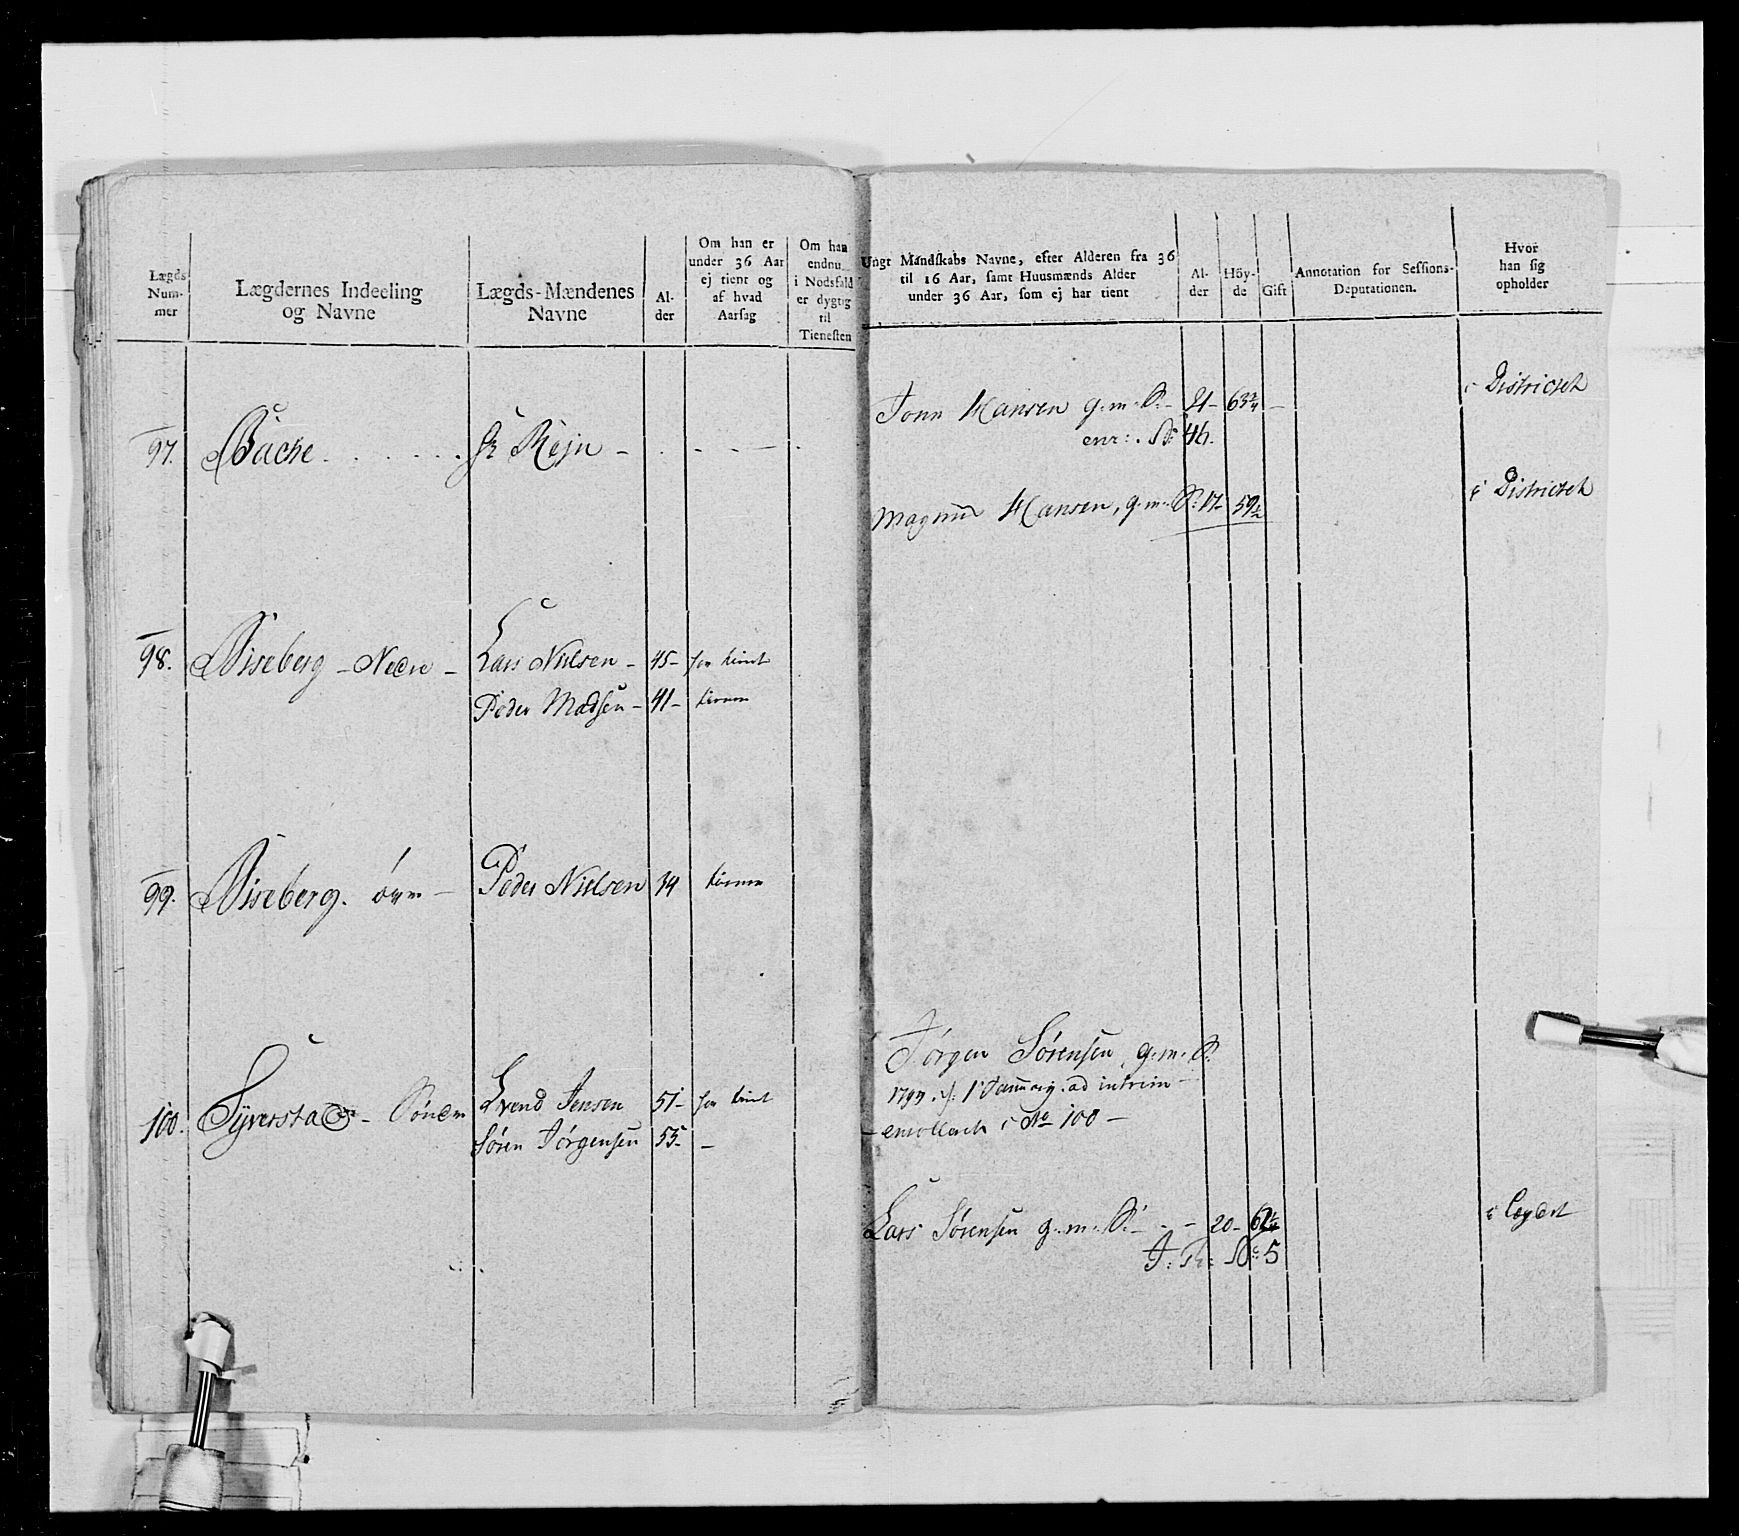 Lægds Num-mer
Lægdernes Indeeling og Navne
Lægds-Mændenes Navne
Al-der
Om han er under 36 Aar ej tient og af hvad Aarsag
Om han endnu i Nodsfald er dygtig til Tienesten
Ungt Mandskabs Navne, efter Alderen fra 36 til 16 Aar, samt Huusmænds Alder under 36 Aar, som ej har tient
Al-der
Höy-de
Gift
Annotation for Sessions-Deputationen.
Hvor han sig opholder
97. Bache Hr Rejn
Jonn Hansen g. m. S. 21 63¾ i Districtet
enr: No 46.
Magnus Hansen, g. m. S. 17 59½ i Districtet
98. Wiseberg Nedre Lars Nielsen 45 har tient
Peder Madsen 41
99. Wiseberg. øvre Peder Nielsen 34
100. Syverstad Søndre Svend Jensen 51 har tient
Søren Jörgensen 55
Jörgen Sörensen g. m. S.
1797. 1 Januarij ad interim
enrolleret i No 100
Lars Sörensen g. m. S. 20 i Lægdet
No 5